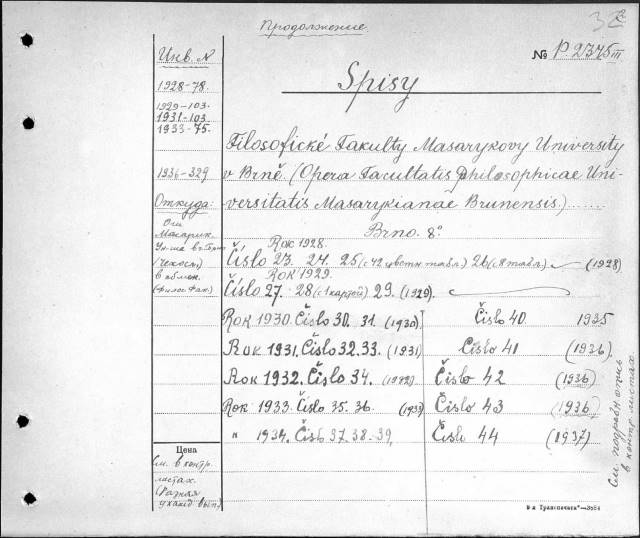 Продолжение.
Инв. N
№ Р.2375 III
1928-78.
Spisy
1929-103.
1931-103.
1933-75.
Filosofické Fakulty Masarykovy University
1936-329
v Brně. (Opera Facultatis philosophicae Uni-
Откуда:
versitatis Masarykianae Brunensis.)
От
Масарик.
Ун-та в г. Брно
(Чехосл.)
в обмен.
(Филос. Фак.)
Brno. 8°
Rok 1928.
Číslo 23. 24. 25 (с 42 цветн табл.) 26 (с 8 табл.) (1928)
Rok 1929.
Číslo 27. 28 (с 1 картой) 29. (1929).
Rok 1930. Číslo 30. 31. (1930). Číslo 40. 1935
Rok 1931. Číslo 32. 33. (1931) Číslo 41 (1936)
Rok 1932. Číslo 34. (1932) Číslo 42 (1936)
Rok 1933. Číslo 35. 36. (1933) Číslo 43 (1936)
" 1934. Číslo 37. 38. 39, Číslo 44 (1937)
Цена
См. в контр.
листах.
(Разная
у кажд. вып.)
См подробн опись
в контр листах